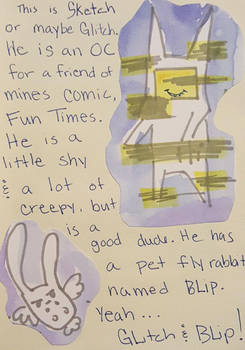 This is Sketch
or maybe Glitch.
He is an OC
for a friend of
mines comic,
Fun Times.
He is a
little shy
& a lot of
creepy, but
is a
good dude. He has
a pet fly rabbit
named Blip.
Yeah...
Glitch & Blip!